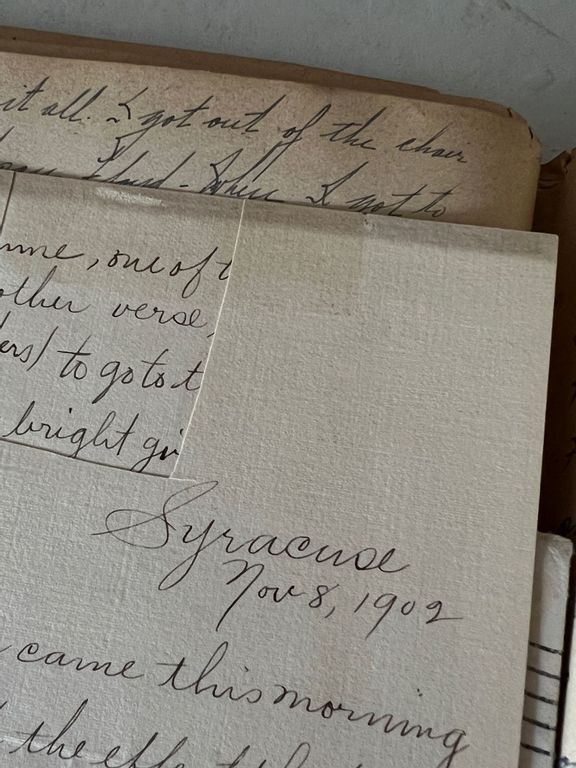 it all. I got out of the chair
When I got to
me, one of t
other verse,
ers) to go to t
bright gi
Syracuse
Nov 8, 1902
came this morning
the effect